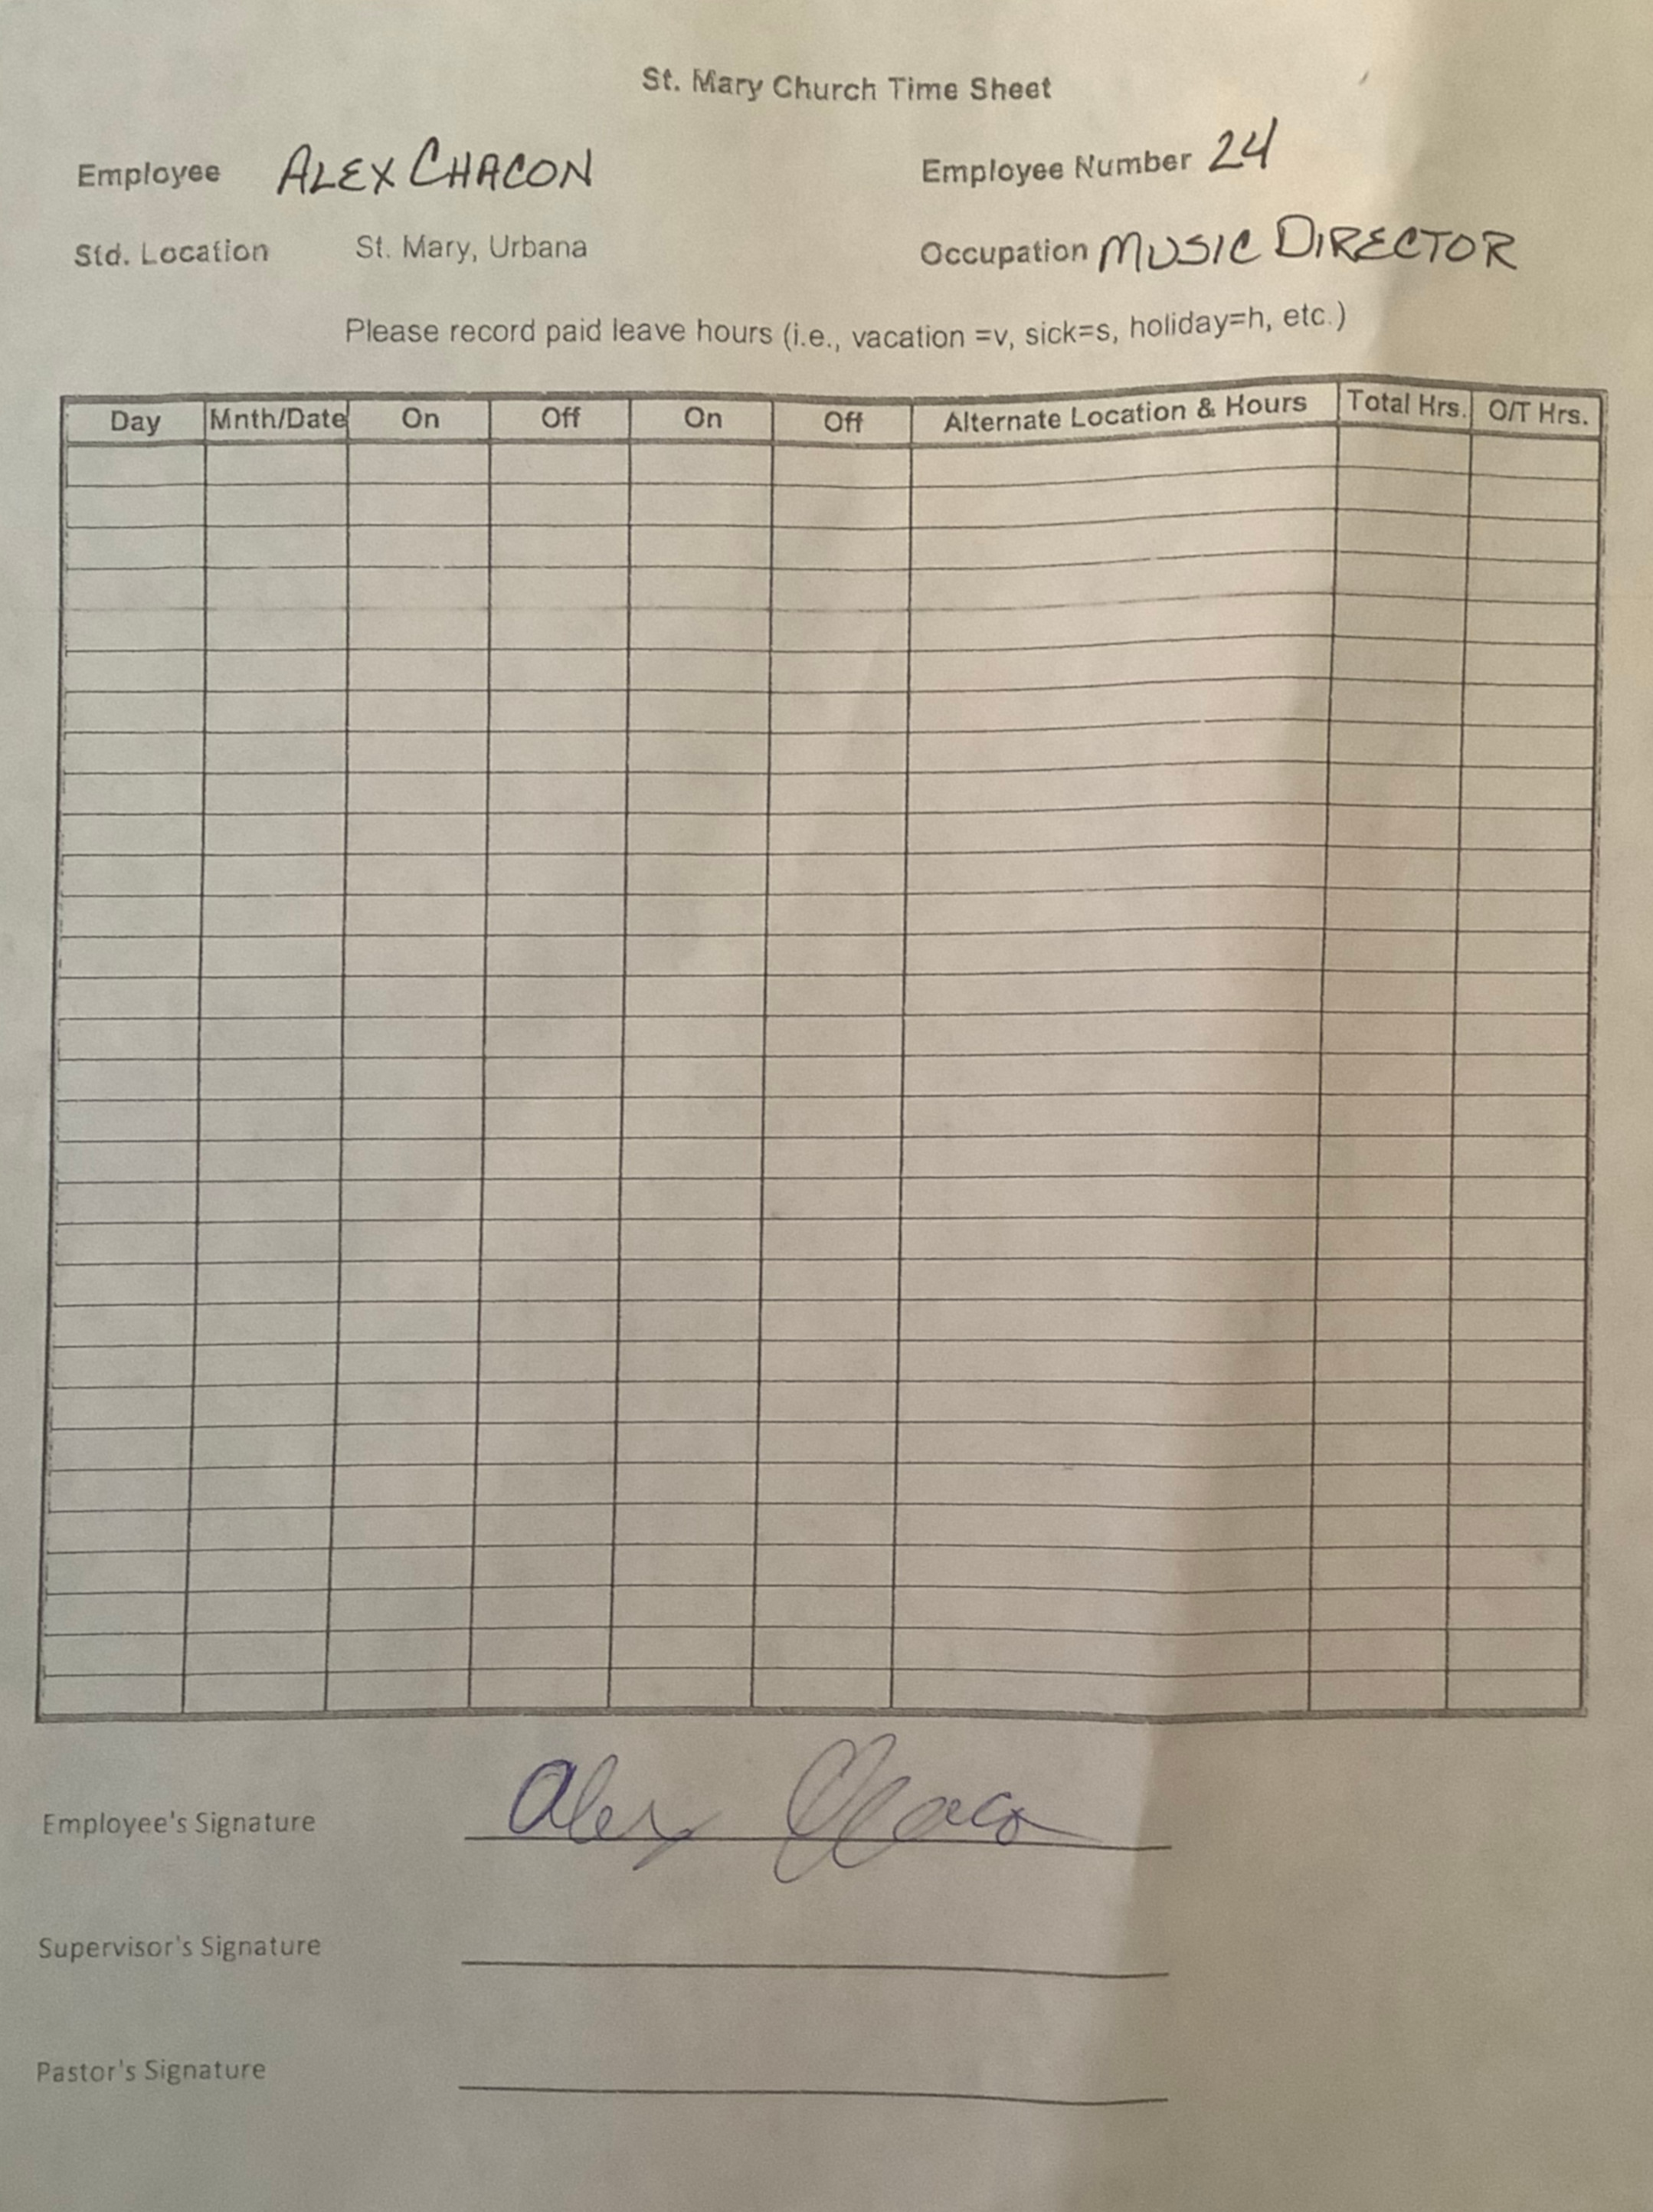 St. Mary Church Time Sheet
Employee ALEX CHACON Employee Number 24
Std. Location St. Mary, Urbana Occupation MUSIC DIRECTOR
Please record paid leave hours (i.e., vacation =v, sick=s, holiday=h, etc.)
Day Mnth/Date On Off On Off Alternate Location & Hours Total Hrs. O/T Hrs.
Employee's Signature Alex Chaco
Supervisor's Signature
Pastor's Signature